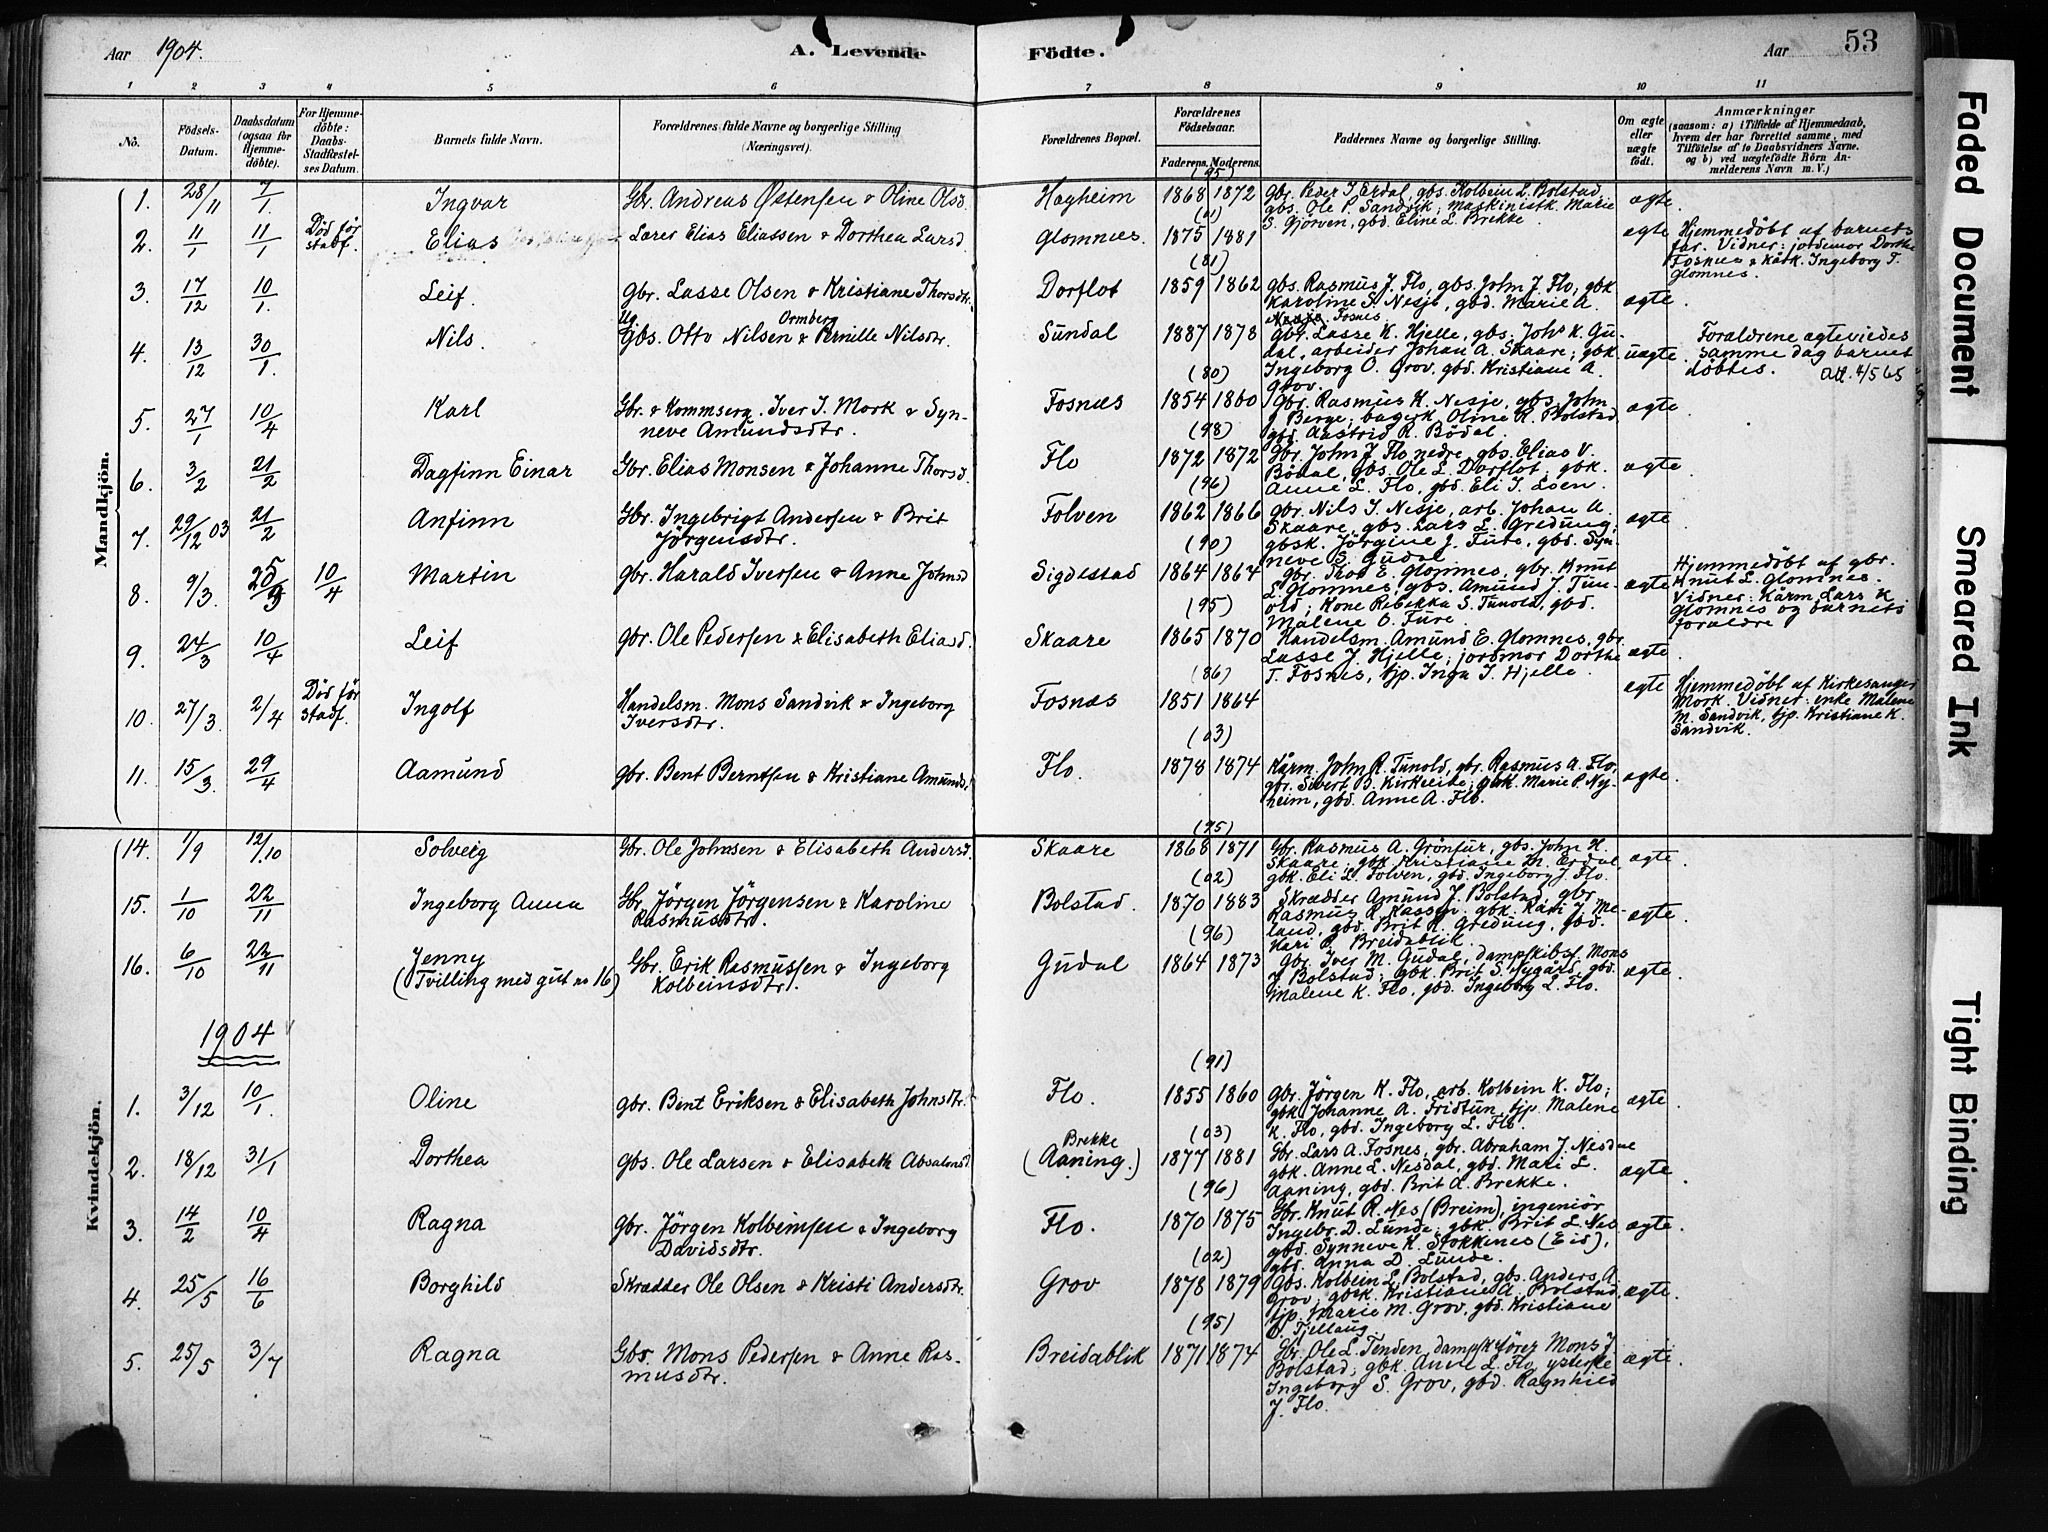 Aar 1904.
A. Levende Födte.
Aar
53
1 2 3 4 5 6 7 8 9 10 11
No.
Födsels-Datum.
Daabsdatum (ogsaa for Hjemmedöbte).
For Hjemmedöbte: Daabs-Stadfæstelses Datum.
Barnets fulde Navn.
Forældrenes fulde Navne og borgerlige Stilling (Næringsvei).
Forældrenes Bopæl.
Forældrenes Födselsaar.
Faderens. Moderens.
Faddernes Navne og borgerlige Stilling.
Om ægte eller uægte födt.
Anmærkninger
(saasom: a) i Tilfælde af Hjemmedaab, hvem der har forrettet samme, med Tilföielse af to Daabsvidners Navne. og b) ved uægtefödte Börn Anmelderens Navn m. V.)
Mandkjön.
1. 28/11 7/1. Ingvar Gbr. Andreas Østensen & Oline Olsd. Hagheim (95) 1868 1872 gbr. Peder J. Erdal, gbs. Kolbein L. Bolstad,
gbs. Ole P. Sandvik; maskinistk. Marie
S. Gjörven, gbd. Eline L. Brekke ægte.
2. 11/1 11/1 Död för stadf. Elias Lærer Elias Eliassen & Dorthea Larsd. Glomnes. (01) 1875 1881 ægte Hjemmedöbt af barnets
far. Vidner: jordemor Dorthe
Fosnes & kårk. Ingeborg T.
Glomnes.
3. 17/12 10/1. Leif. gbr. Lasse Olsen & Kristiane Thorsdtr. Dorflot (81) 1859 1862 gbs. Rasmus J. Flo, gbs. John J. Flo; gbk
Karoline S. Nesje, gbd. Marie A.
Nesje. Fosnes. ægte.
4. 13/12 30/1. Nils. Ug Gbs. Otto Nilsen & Pernille Nilsdtr. Ormberg Sundal 1887 1878 gbr. Lasse K. Hjelle, gbs. Johs K. Gu-
dal, arbeider Johan A. Skaare; gbk.
Ingeborg O. Grov. gbd. Kristiane A.
Grov. uægte. Forældrene ægteviedes
samme dag barnet
döbtes. Att. 4/5 65
5. 27/1 10/4 Karl Gbr. & Kommserg. Iver J. Mork & Syn-
neve Amundsdtr. Fosnæs (80) 1854 1860 Gbr. Rasmus K. Nesje, gbs. John
J. Berge; bagerk. Oline R. Bolstad
gbd. Aastrid R. Bödal. ægte.
6. 3/2 21/2 Dagfinn Einar Gbr. Elias Monsen & Johanne Thorsd. Flo (98) 1872 1872 Gbr. John J. Flo nedre, gbs. Elias V.
Bödal, gbs. Ole L. Dorflot; gbk.
Anne L. Flo, gbd. Eli J. Loen. ægte.
7. 29/12 03 21/2 Anfinn Gbr. Ingebrigt Andersen & Brit
Jörgensdtr. Folven (96) 1862 1866 gbr. Nils J. Nesje, arb. Johan A.
Skaare, gbs. Lars L. Gredung;
gbsk. Jörgine J. Fure, gbd. Syn-
neve S. Gudal ægte.
8. 9/3. 25/3 10/4 Martin gbr. Harald Iversen & Anne Johnsd Sigdestad (90) 1864 1864 Gbr. Thob E. Glomnes, gbr. Knut
L. Glomnes, gbs. Amund J. Tun-
old; Kone Rebekka S. Tunold, gbd.
Malene O. Fure. ægte Hjemmedöbt af gbr.
Knut L. Glomnes.
Vidner: Kårm. Lars K.
Glomnes og barnets
forældre
9. 24/3 10/4 Leif gbr. Ole Pedersen & Elisabeth Eliasd. Skaare (95) 1865 1870 Handelsm. Amund E. Glomnes, gbr
Lasse J. Hjelle; jordmor Dorthe
T. Fosnes, tjp. Inga I. Hjelle. ægte.
10. 27/3. 2/4 Död för stadf. Ingolf Handelsm. Mons Sandvik & Ingeborg
Iversdtr. Fosnæs (86) 1851 1864 ægte Hjemmedöbt af Kirkesanger
Mork. Vidner: enke Malene
M. Sandvik, tjp. Kristiane K.
Sandvik.
11. 15/3. 29/4 Aamund gbr. Bent Berntsen & Kristiane Amundsd. Flo. (03) 1878 1874 Kårm. John R. Tunold, gbr. Rasmus A. Flo,
gbr. Sivert B. Kirkeide; gbk. Marie P. Ny-
heim, gbd. Anne A. Flo. ægte.
Kvindekjön.
14. 1/9 12/10 Solveig Gbr. Ole Johnsen & Elisabeth Andersd. Skaare (95) 1868 1871 Gbr. Rasmus A. Grönfur, gbs. John H.
Skaare; gbk. Kristiane M. Erdal,
gbk. Eli L. Folven, gbd. Ingeborg J. Flo. ægte.
15. 1/10 22/11 Ingeborg Anna Gbr. Jörgen Jörgensen & Karoline
Rasmusdtr. Bolstad. (02) 1870 1883 Skrædder Amund J. Bolstad, gbr
Rasmus R. Kassen; gbk. Kari J. Me-
land, gbd. Brit R. Gredung, gbd.
Kari Breidablik. ægte.
16. 6/10 22/11 Jenny
(Tvilling med gut no 16) Gbr. Erik Rasmussen & Ingeborg
Kolbeinsdtr. Gudal (96) 1864 1873 gbr. Iver M. Gudal, dampskibsf. Mons
J. Bolstad; gbk. Brit S. Nygård, gbd.
Malene K. Flo, gbd. Ingeborg L. Flo. ægte.
1904
1. 3/12 10/1. Oline gbr. Bent Eriksen & Elisabeth Johnsdtr. Flo. (91) 1855 1860 gbr. Jörgen K. Flo, arb. Kolbein K. Flo;
gbk. Johanne A. Fridtun, tjp. Malene
K. Flo, gbd. Ingeborg L. Flo. ægte.
2. 18/12 31/1 Dorthea gbs. Ole Larsen & Elisabeth Absalonsd. Brekke (Aaning.) (03) 1877 1881 Gbr. Lars A. Fosnes, gbr. Abraham J. Nesdal
gbk. Anne L. Nesdal, gbd. Mari L.
Aaning, gbd. Brit A. Brekke. ægte.
3. 14/2 10/4 Ragna gbr. Jörgen Kolbeinsen & Ingeborg
Davidsdtr. Flo. (96) 1870 1875 Gbr. Knut R. Nes (Breim), ingeniör
Ingebr. D. Lunde; gbk. Brit L. Nes
gbd. Synneve K. Stokkenes (Eid),
gbd. Anna D. Lunde. ægte.
4. 25/5 16/6 Borghild Skrædder Ole Olsen & Kristi Andersdtr. Grov (02) 1878 1879 Gbs. Kolbein L. Bolstad, gbs. Anders A.
Grov; gbsk. Kristiane A. Bolstad,
tjp. Marie M. Grov, gbd. Kristiane
O. Tjellaug ægte.
5. 25/5 3/7 Ragna Gbr. Mons Pedersen & Anne Ras-
musdtr. Breidablik (95) 1871 1874 Gbr. Ole L. Tenden, dampskförer Mons J.
Bolstad; gbk. Anne L. Flo, ysterske
Ingeborg S. Grov, gbd. Ragnhild
J. Flo. ægte.
Faded Document
Smeared Ink
Tight Binding